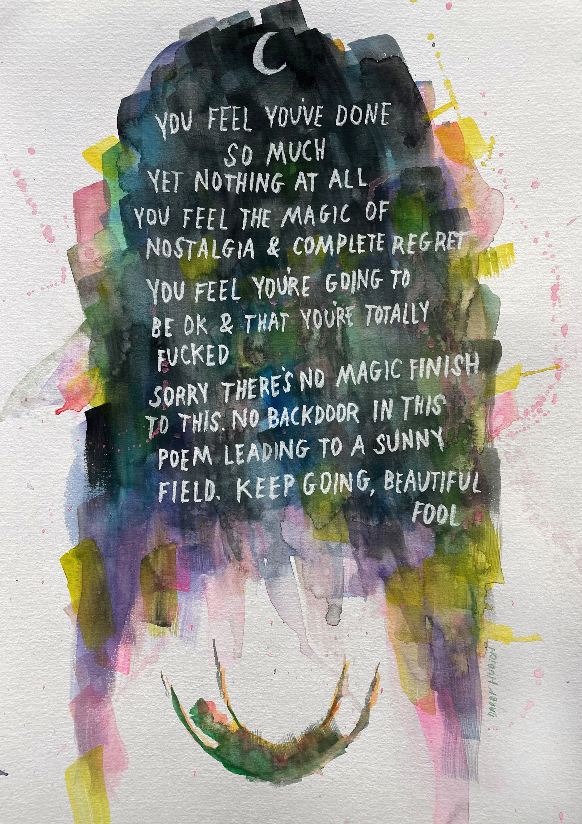 YOU FEEL YOU'VE DONE
SO MUCH
YET NOTHING AT ALL
YOU FEEL THE MAGIC OF
NOSTALGIA & COMPLETE REGRET
YOU FEEL YOU'RE GOING TO
BE OK & THAT YOU'RE TOTALLY
FUCKED
SORRY THERE'S NO MAGIC FINISH
TO THIS. NO BACKDOOR IN THIS
POEM LEADING TO A SUNNY
FIELD. KEEP GOING, BEAUTIFUL
FOOL